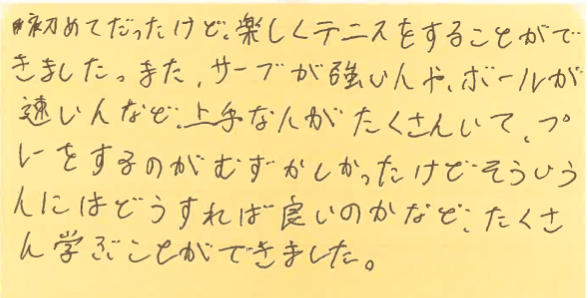 初めてだったけど、楽しくテニスをすることがで
きました。また、サーブが強い人や、ボールが
速い人など、上手な人がたくさんいて、プ
レーをするのがむずかしかったけどそういう
人にはどうすれば良いのかなど、たくさ
ん学ぶことができました。